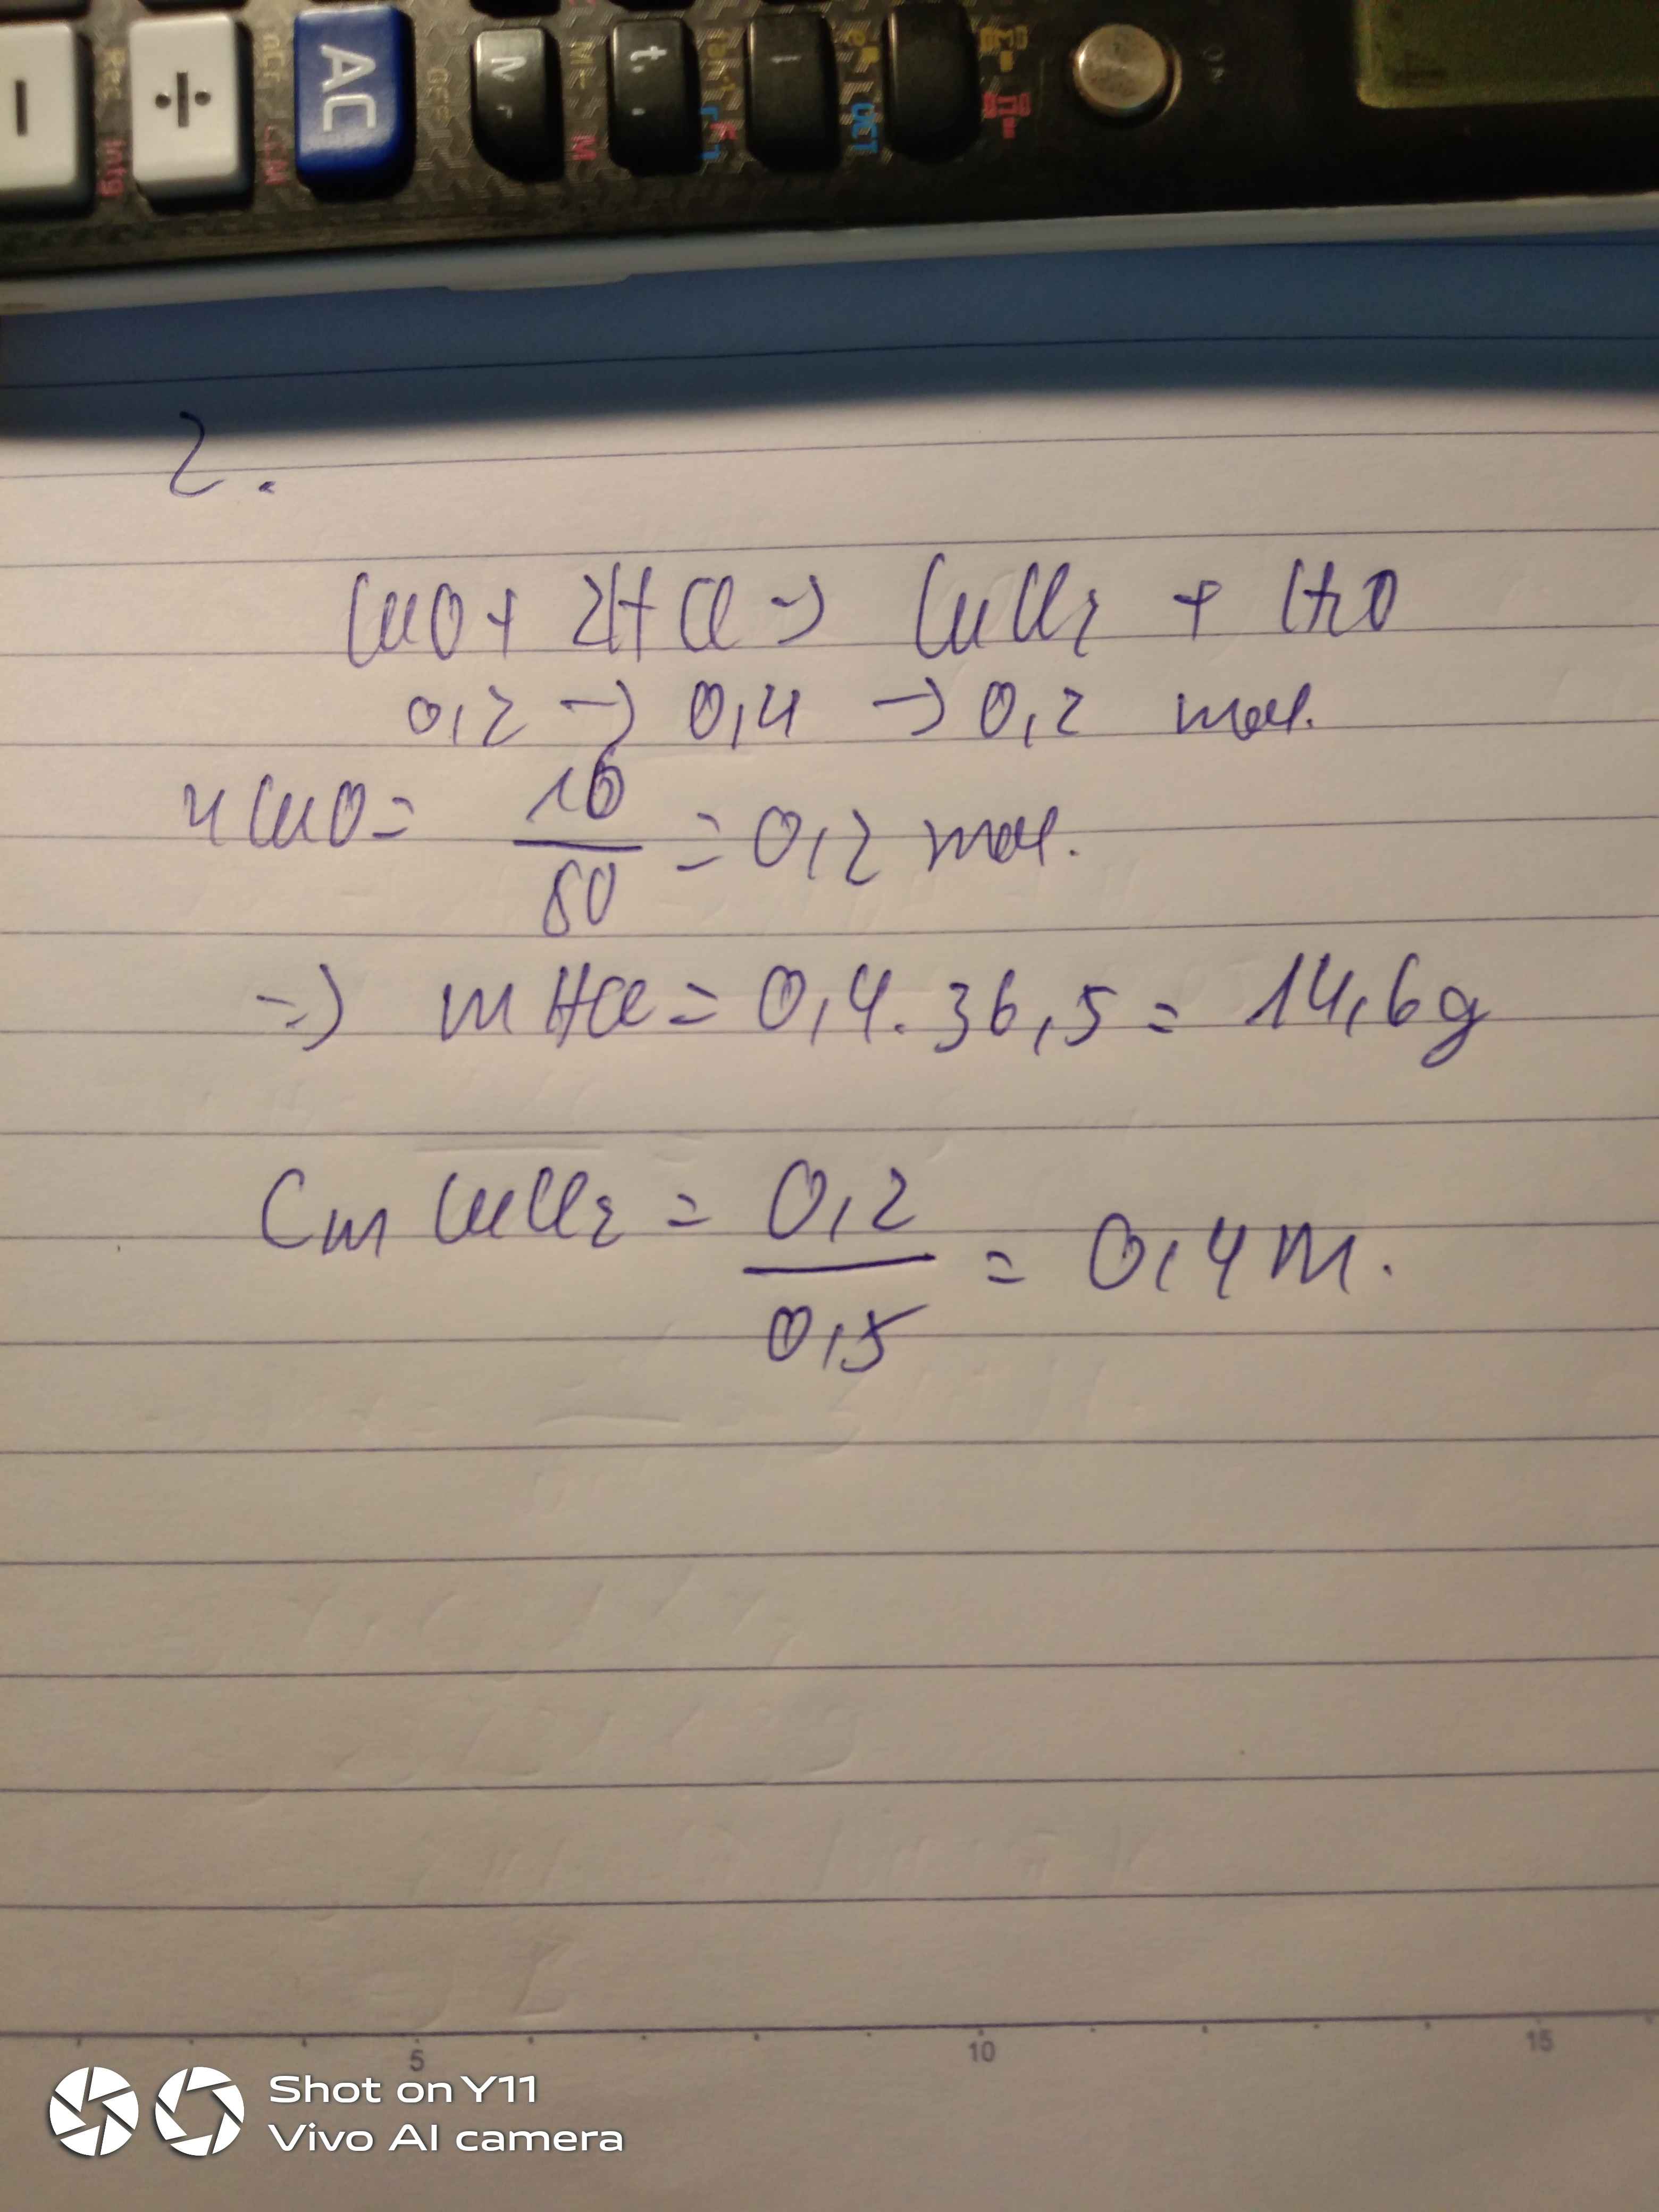 AC
÷
-
Rec
Intg
2.
CuO + 2HCl -> CuCl2 + H2O
0,2 -> 0,4 -> 0,2 mol.
nCuO = 16/80 = 0,2 mol.
=> mHCl = 0,4.36,5 = 14,6g
Cm CuCl2 = 0,2/0,5 = 0,4M.
5 10 15
Shot on Y11
Vivo AI camera